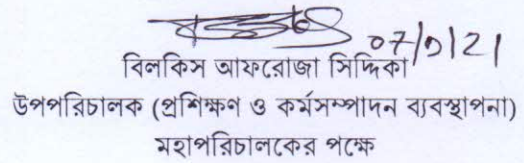 07/9/21
বিলকিস আফরোজা সিদ্দিকা
উপপরিচালক (প্রশিক্ষণ ও কর্মসম্পাদন ব্যবস্থাপনা)
মহাপরিচালকের পক্ষে